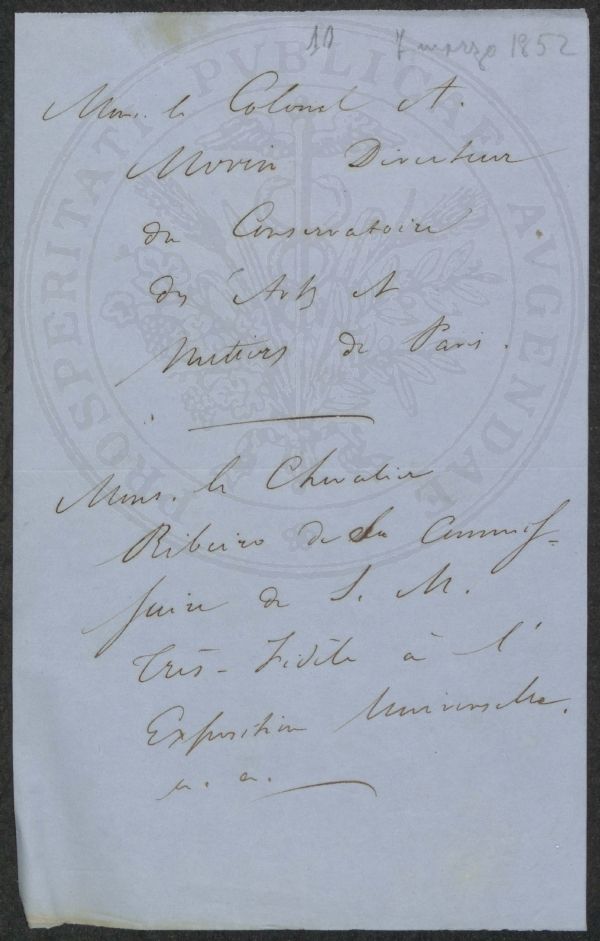 10 7 marzo 1852
Mons. le Colonel A.
Morin Directeur
du Conservatoire
des Arts et
Métiers de Paris.
Mons. le Chevalier
Ribeiro de Sa Commis-
saire de S. M.
Très-Fidèle à l'
Exposition Universelle.
PROSPERITATI PUBLICAE AVGENDAE